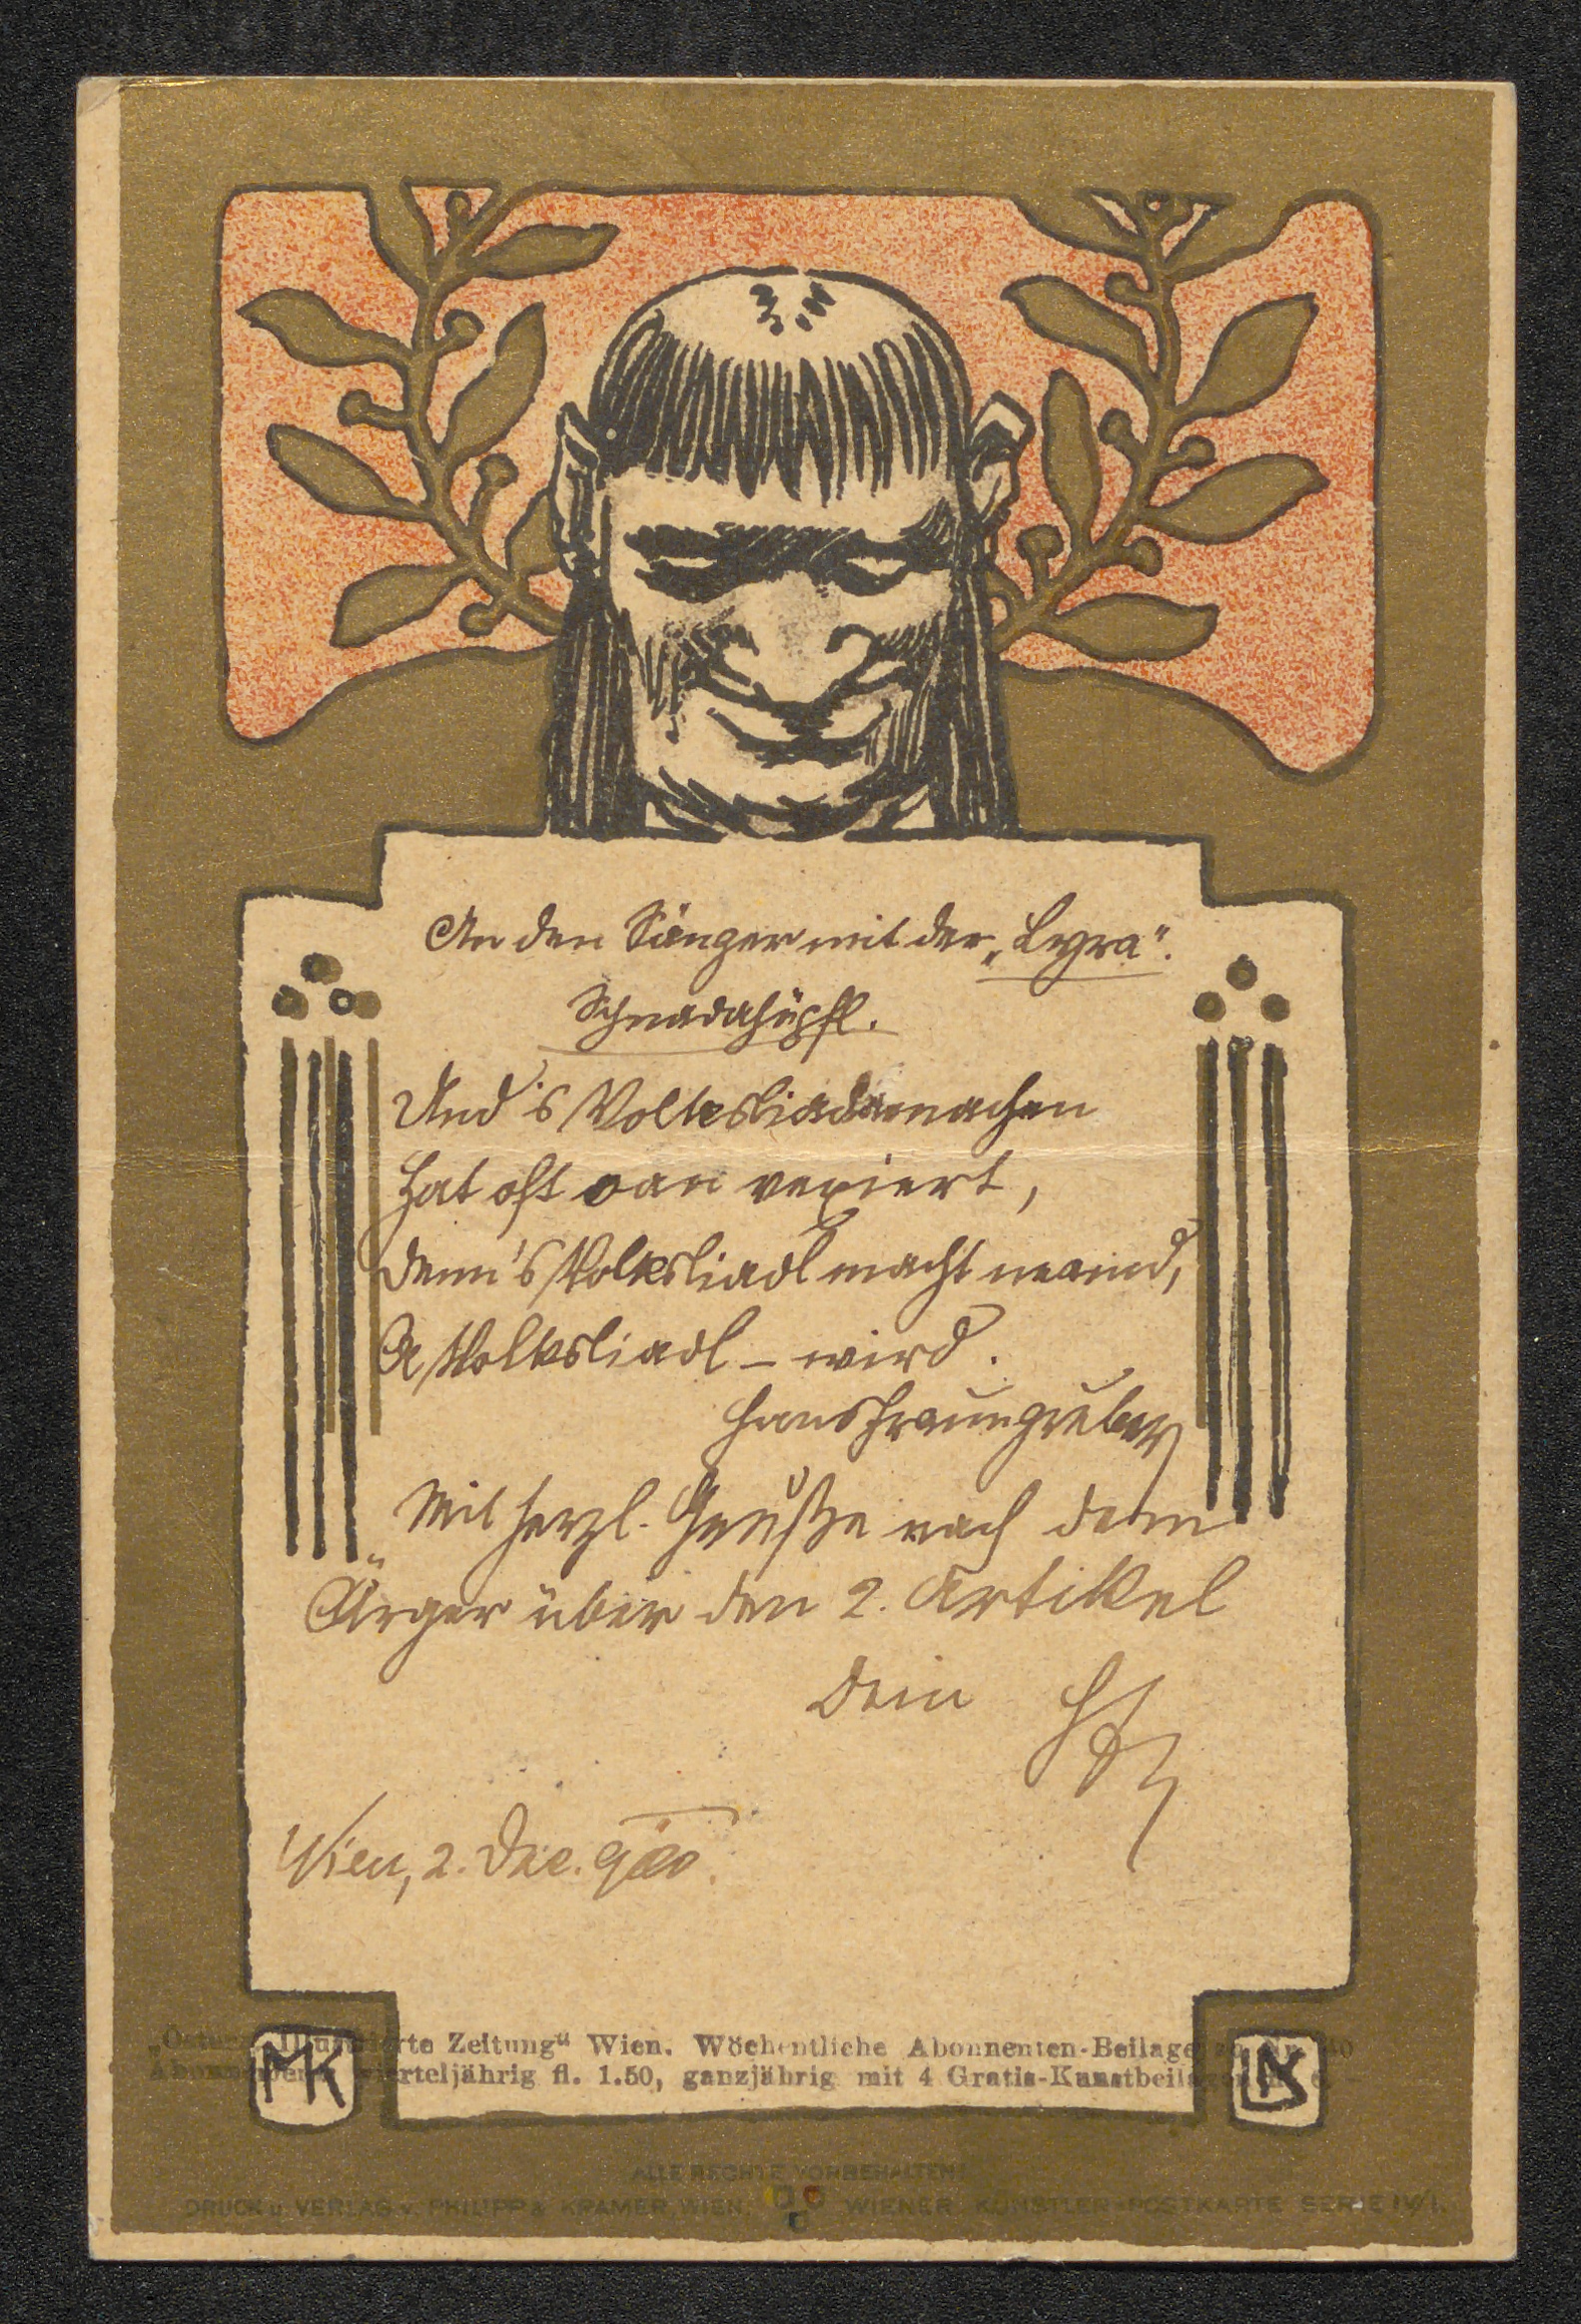 An den Sänger mit der „Lyra“.
Schnadahüpfl.
Und 's Volksliadamachen
Hat oft oan vexiert,
Denn 's Volksliadl macht neamd,
A Volksliadl – wird.
Hans Fraungruber
Mit herzl. Gruße nach dem
Ärger über den 2. Artikel
Dein
Wien, 2. Dec. 900.
MK
Illustrierte Zeitung“ Wien. Wöchentliche Abonnenten-Beilage
vierteljährig fl. 1.50, ganzjährig mit 4 Gratis-Kunstbeilagen
ALLE RECHTE VORBEHALTEN
DRUCK u. VERLAG v. PHILIPP & KRAMER, WIEN. WIENER KÜNSTLER-POSTKARTE SERIE IV/1.